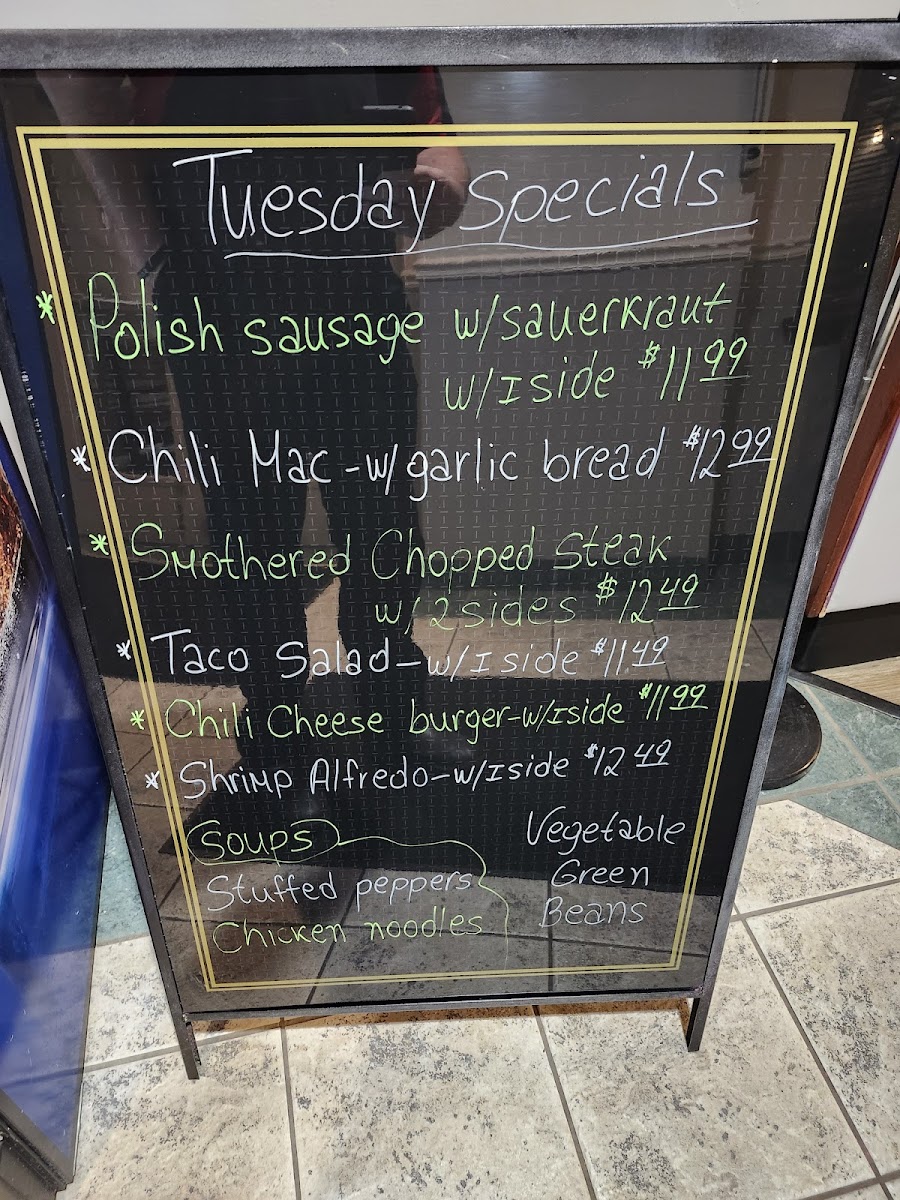 Tuesday Specials
* Polish sausage w/sauerkraut
w/1side $11.99
* Chili Mac - w/garlic bread $12.99
* Smothered Chopped Steak
w/2sides $12.49
* Taco Salad - w/1side $11.49
* Chili Cheese burger - w/1side $11.99
* Shrimp Alfredo - w/1side $12.49
Soups
Stuffed peppers
Chicken noodles
Vegetable
Green
Beans